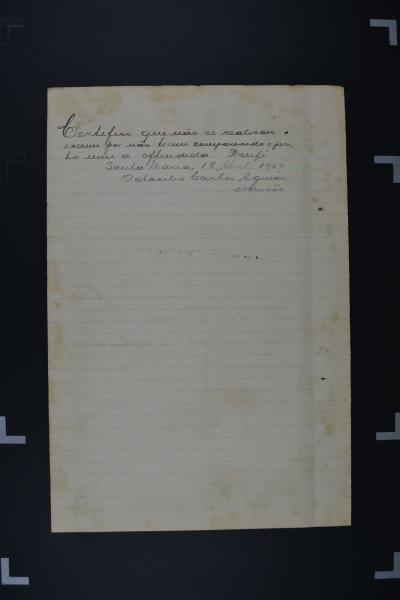 Certifico que não se realisou o
exame por não terem comparecido o peri
to nem a offendida. Doufé
Santa Maria, 18 Abril 1929
Carlos
escrivão